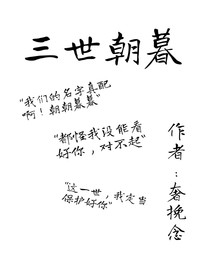 三世朝暮
"我们的名字真配
啊！朝朝暮暮"
"都怪我没能看
好你，对不起"
"这一世，我定当
保护好你"
作者：奢挽念